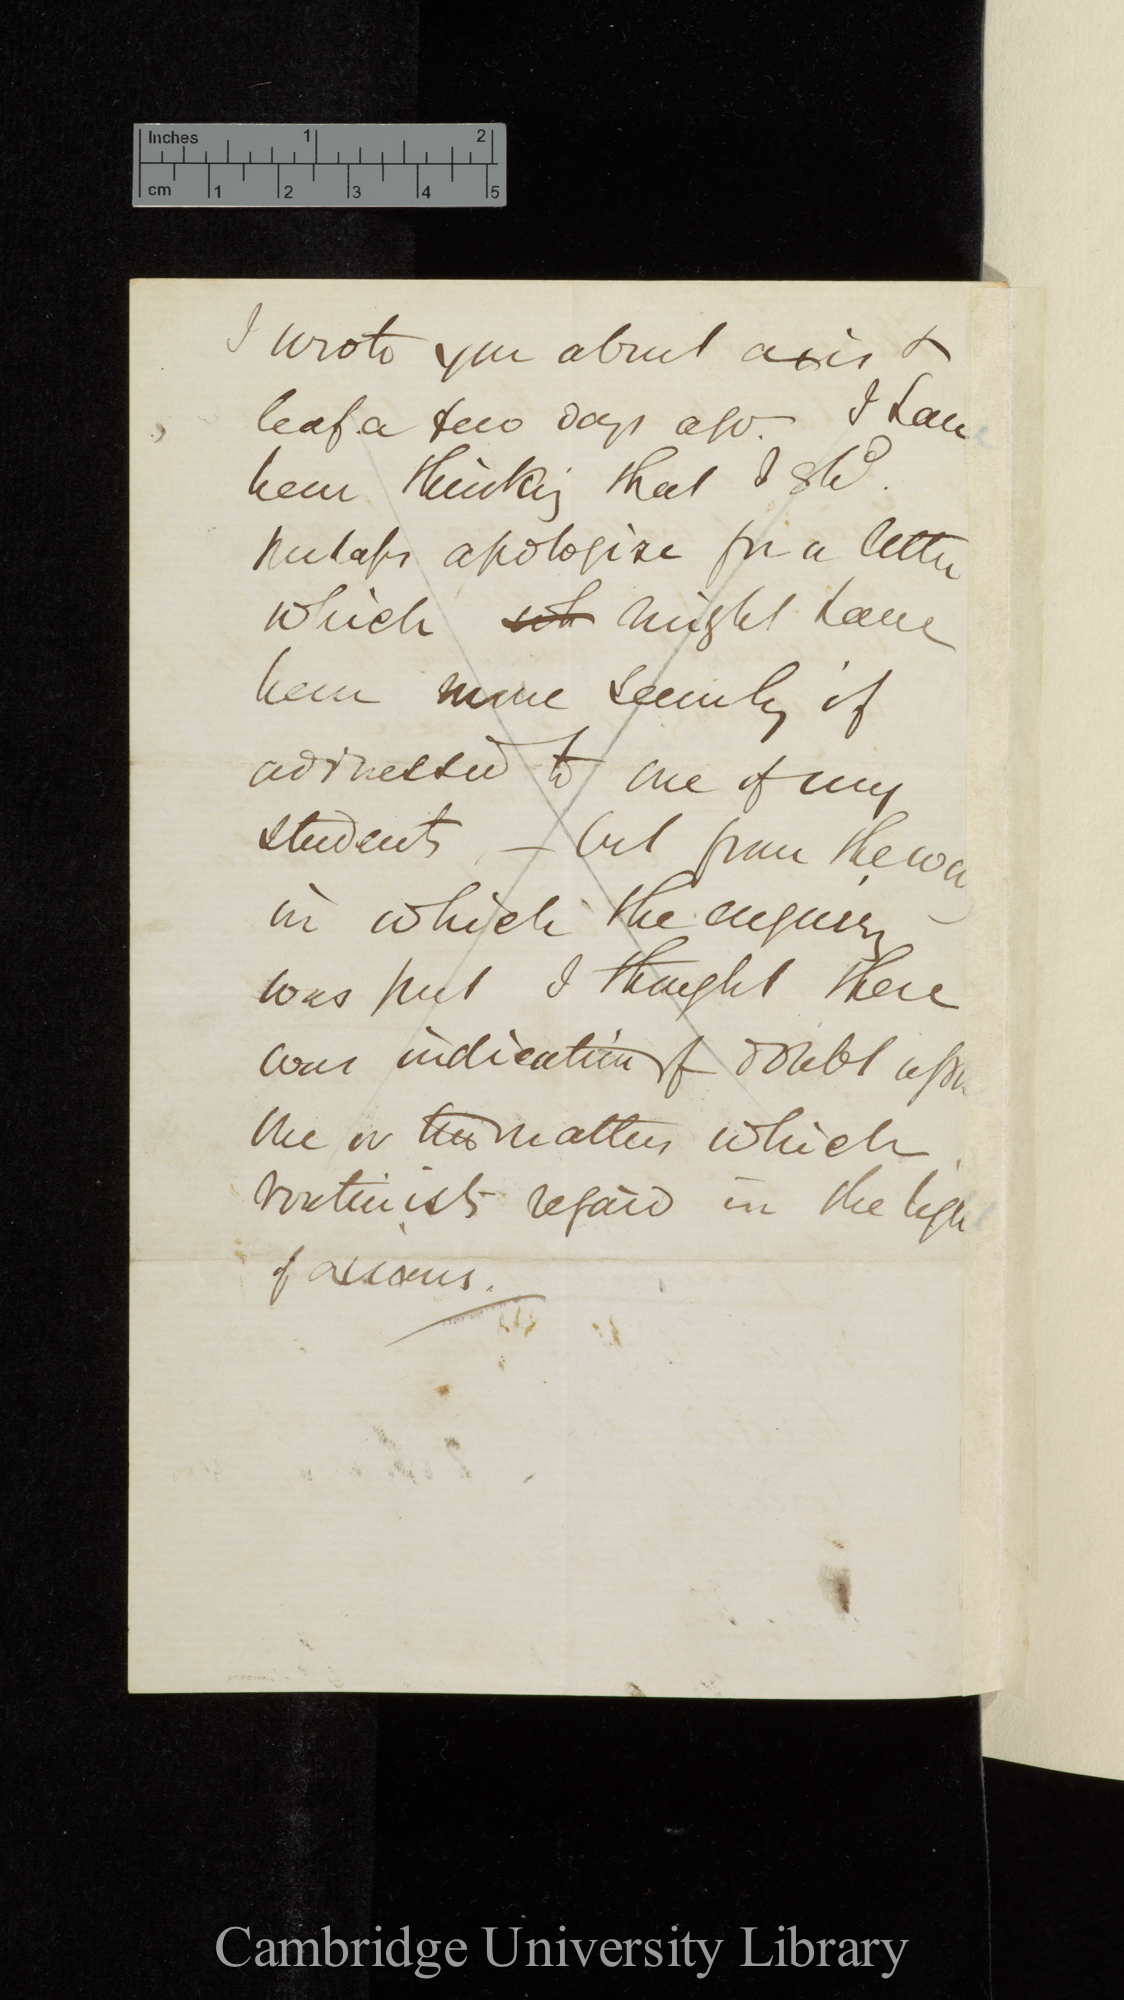 Inches 1 2
cm 1 2 3 4 5
I wrote you about axis &
leaf a few days ago. I have
been thinking that I shd.
perhaps apologise for a letter
which might have
been more seemly if
addressed to one of my
students — but from the way
in which the enquiry
was put I thought there
was indication of doubt upon
one or two matters which
routinists regard in the light
of axioms.
Cambridge University Library